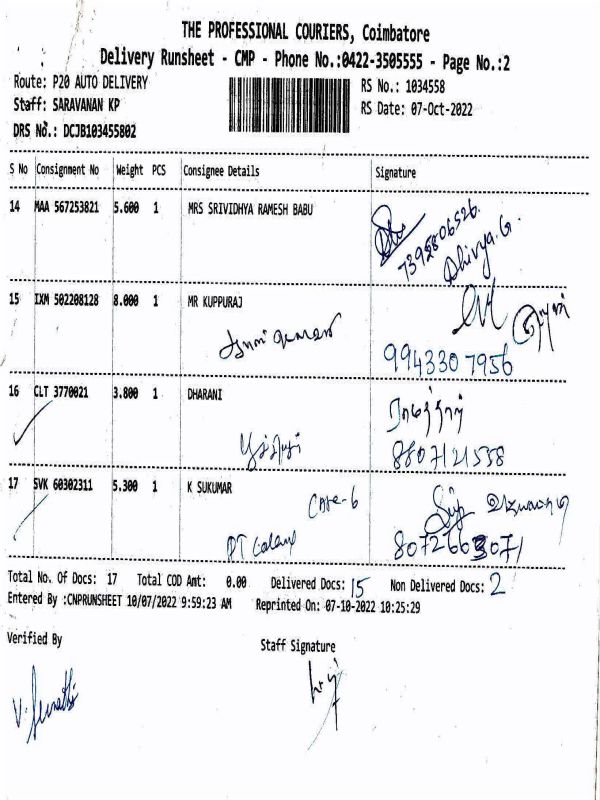 THE PROFESSIONAL COURIERS, Coimbatore
Delivery Runsheet - CMP - Phone No.:0422-3505555 - Page No.:2
Route: P20 AUTO DELIVERY RS No.: 1034558
Staff: SARAVANAN KP RS Date: 07-Oct-2022
DRS No.: DCJB103455802
S No Consignment No Weight PCS Consignee Details Signature
14 MAA 567253821 5.600 1 MRS SRIVIDHYA RAMESH BABU
7395806526.
Dhivya.G.
15 IXM 502208128 8.000 1 MR KUPPURAJ
9943307956
16 CLT 3770021 3.800 1 DHARANI
8807121558
17 SVK 60302311 5.300 1 K SUKUMAR
8072603071
Total No. Of Docs: 17 Total COD Amt: 0.00 Delivered Docs: 15 Non Delivered Docs: 2
Entered By :CNPRUNSHEET 10/07/2022 9:59:23 AM Reprinted On: 07-10-2022 10:25:29
Verified By Staff Signature